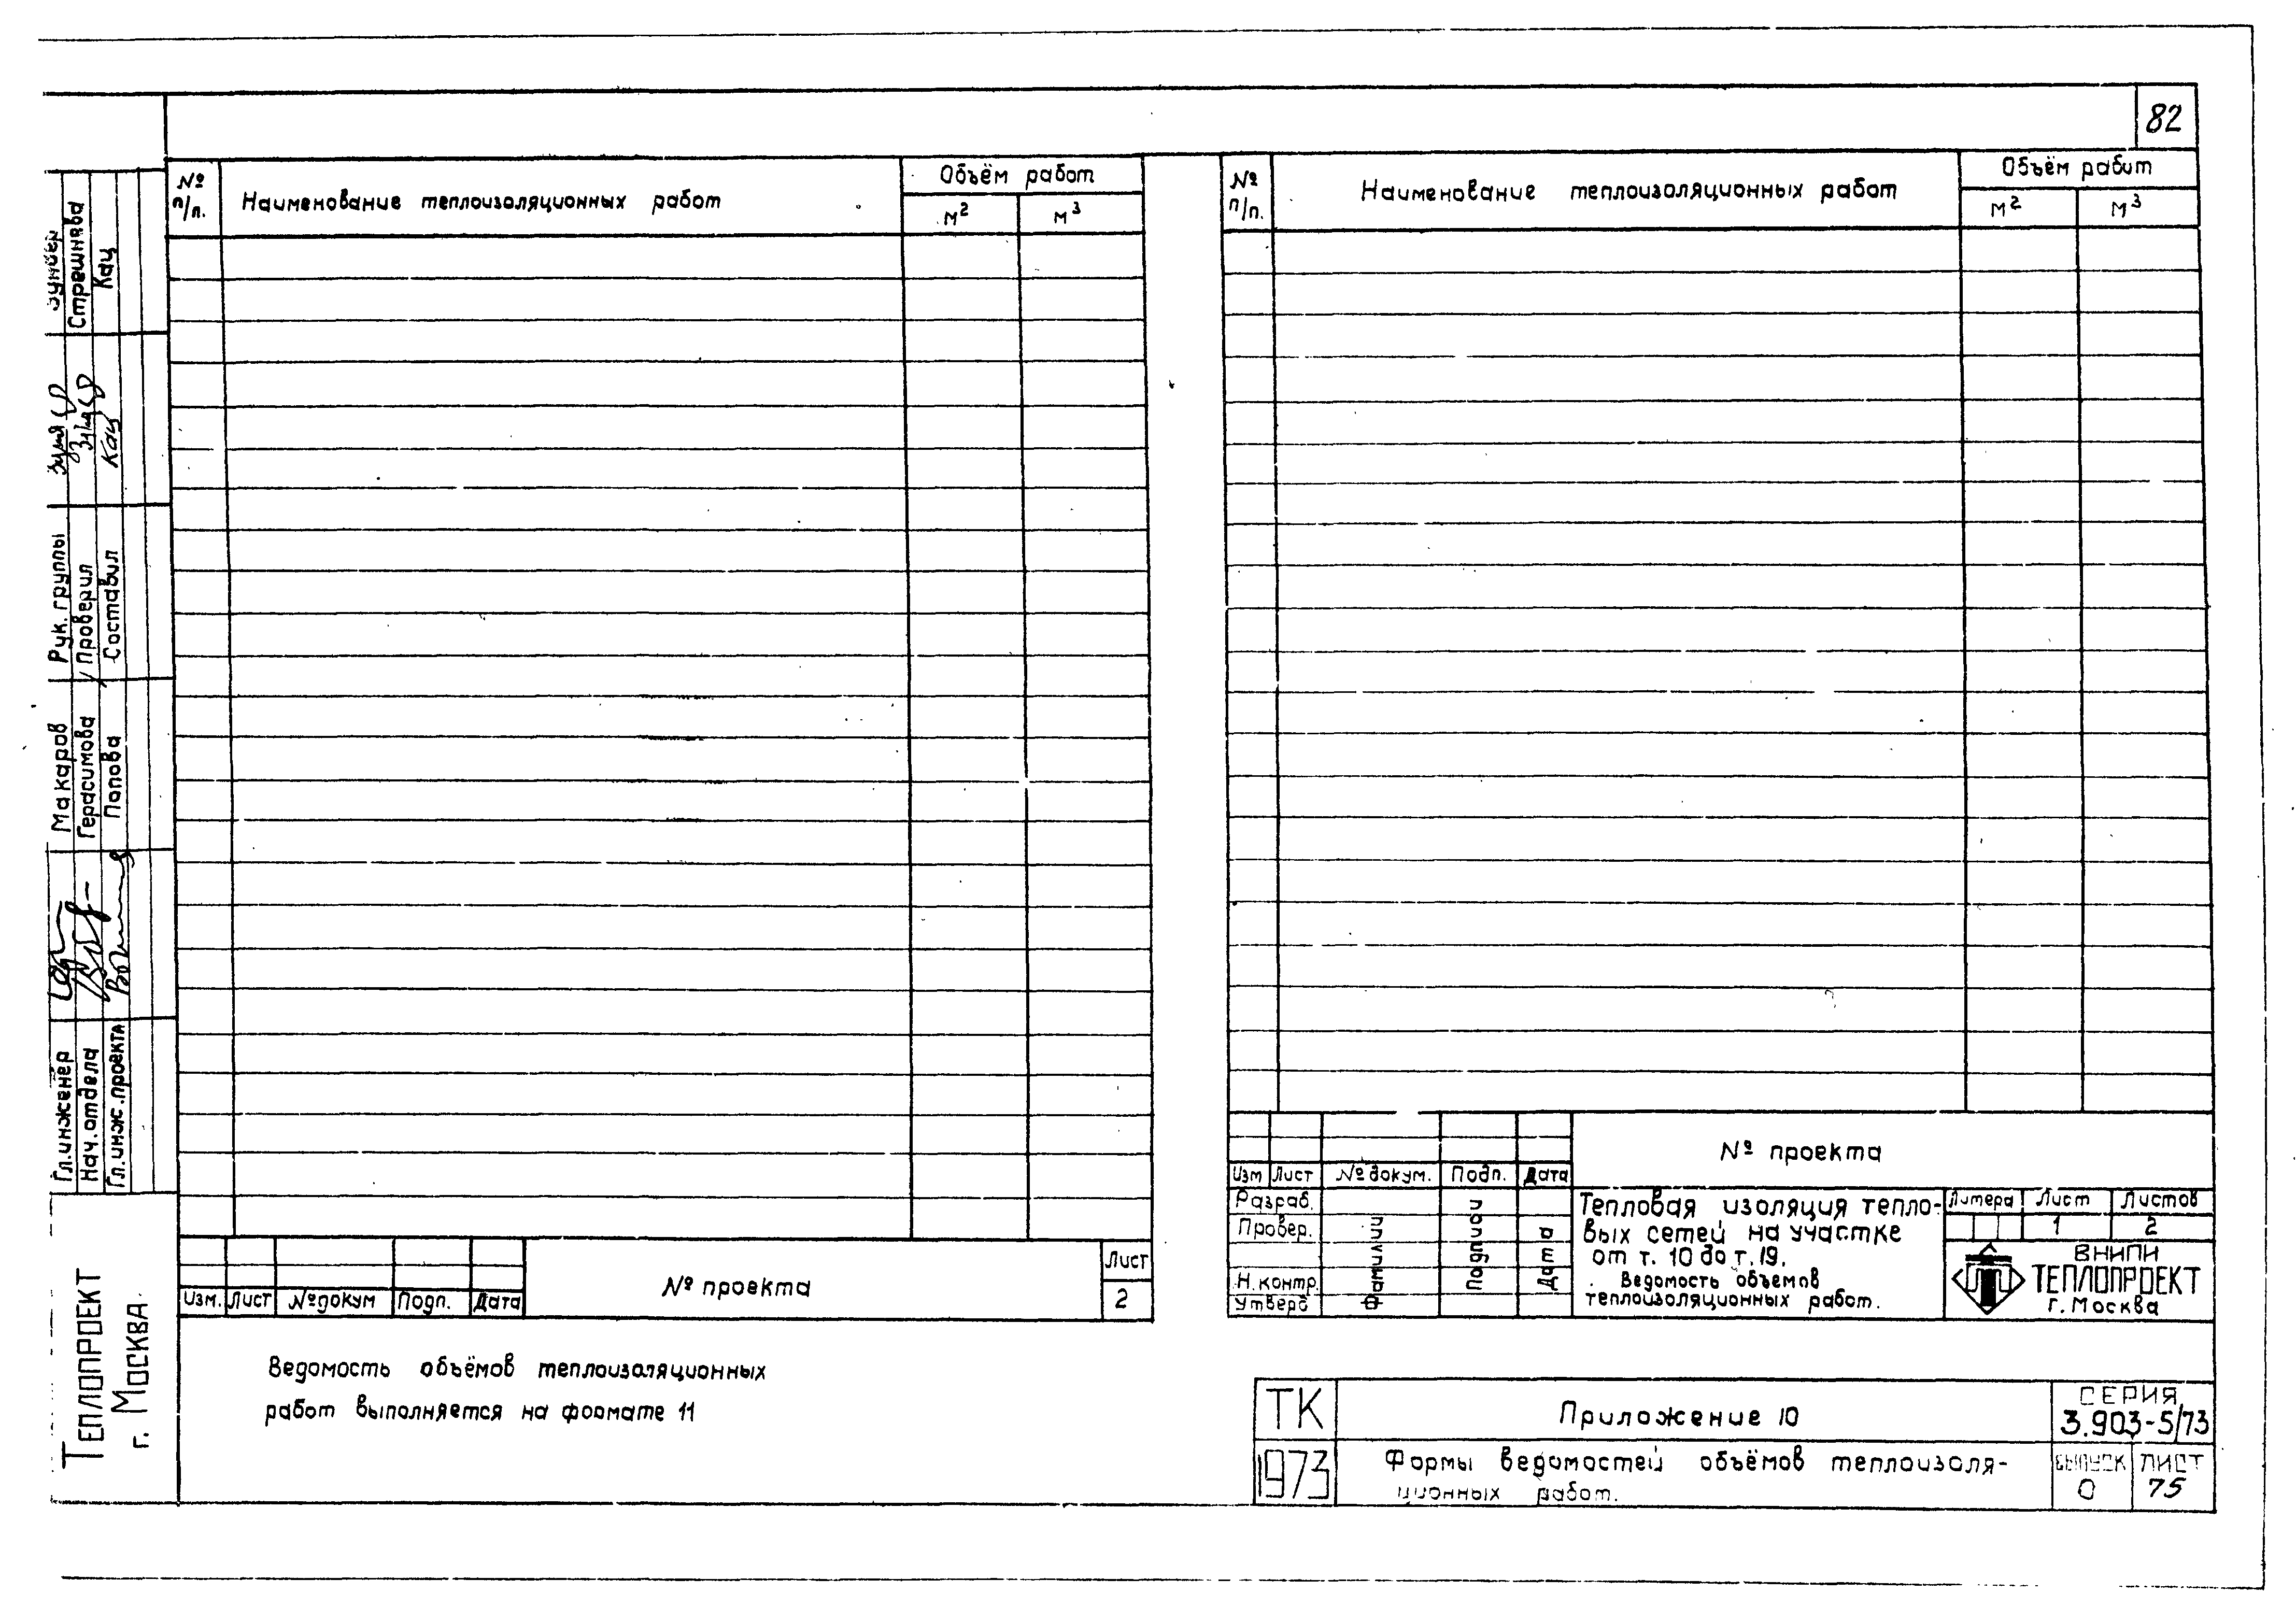 82
№ п/п. Наименование теплоизоляционных работ Объём работ
м² м³
№ п/п. Наименование теплоизоляционных работ Объём работ
м² м³
Изм. Лист № докум Подп. Дата
№ проекта
Лист
2
Ведомость объёмов теплоизоляционных
работ выполняется на формате 11
№ проекта
Изм Лист № докум. Подп. Дата
Разраб.
Провер.
Н.контр.
Утверд
Фамилии
Подписи
Дата
Тепловая изоляция тепло-
вых сетей на участке
от т. 10 до т. 19.
Ведомость объемов
теплоизоляционных работ.
Литера Лист Листов
1 2
ВНИПИ
ТЕПЛОПРОЕКТ
г. Москва
ТК
1973
Приложение 10
Формы ведомостей объёмов теплоизоля-
ционных работ.
СЕРИЯ
3.903-5/73
ВЫПУСК ЛИСТ
0 75
ТЕПЛОПРОЕКТ
г. МОСКВА
Гл.инженер Макаров Рук. группы
Нач. отдела Герасимова Проверил
Гл. инж. проекта Попова Составил Кац